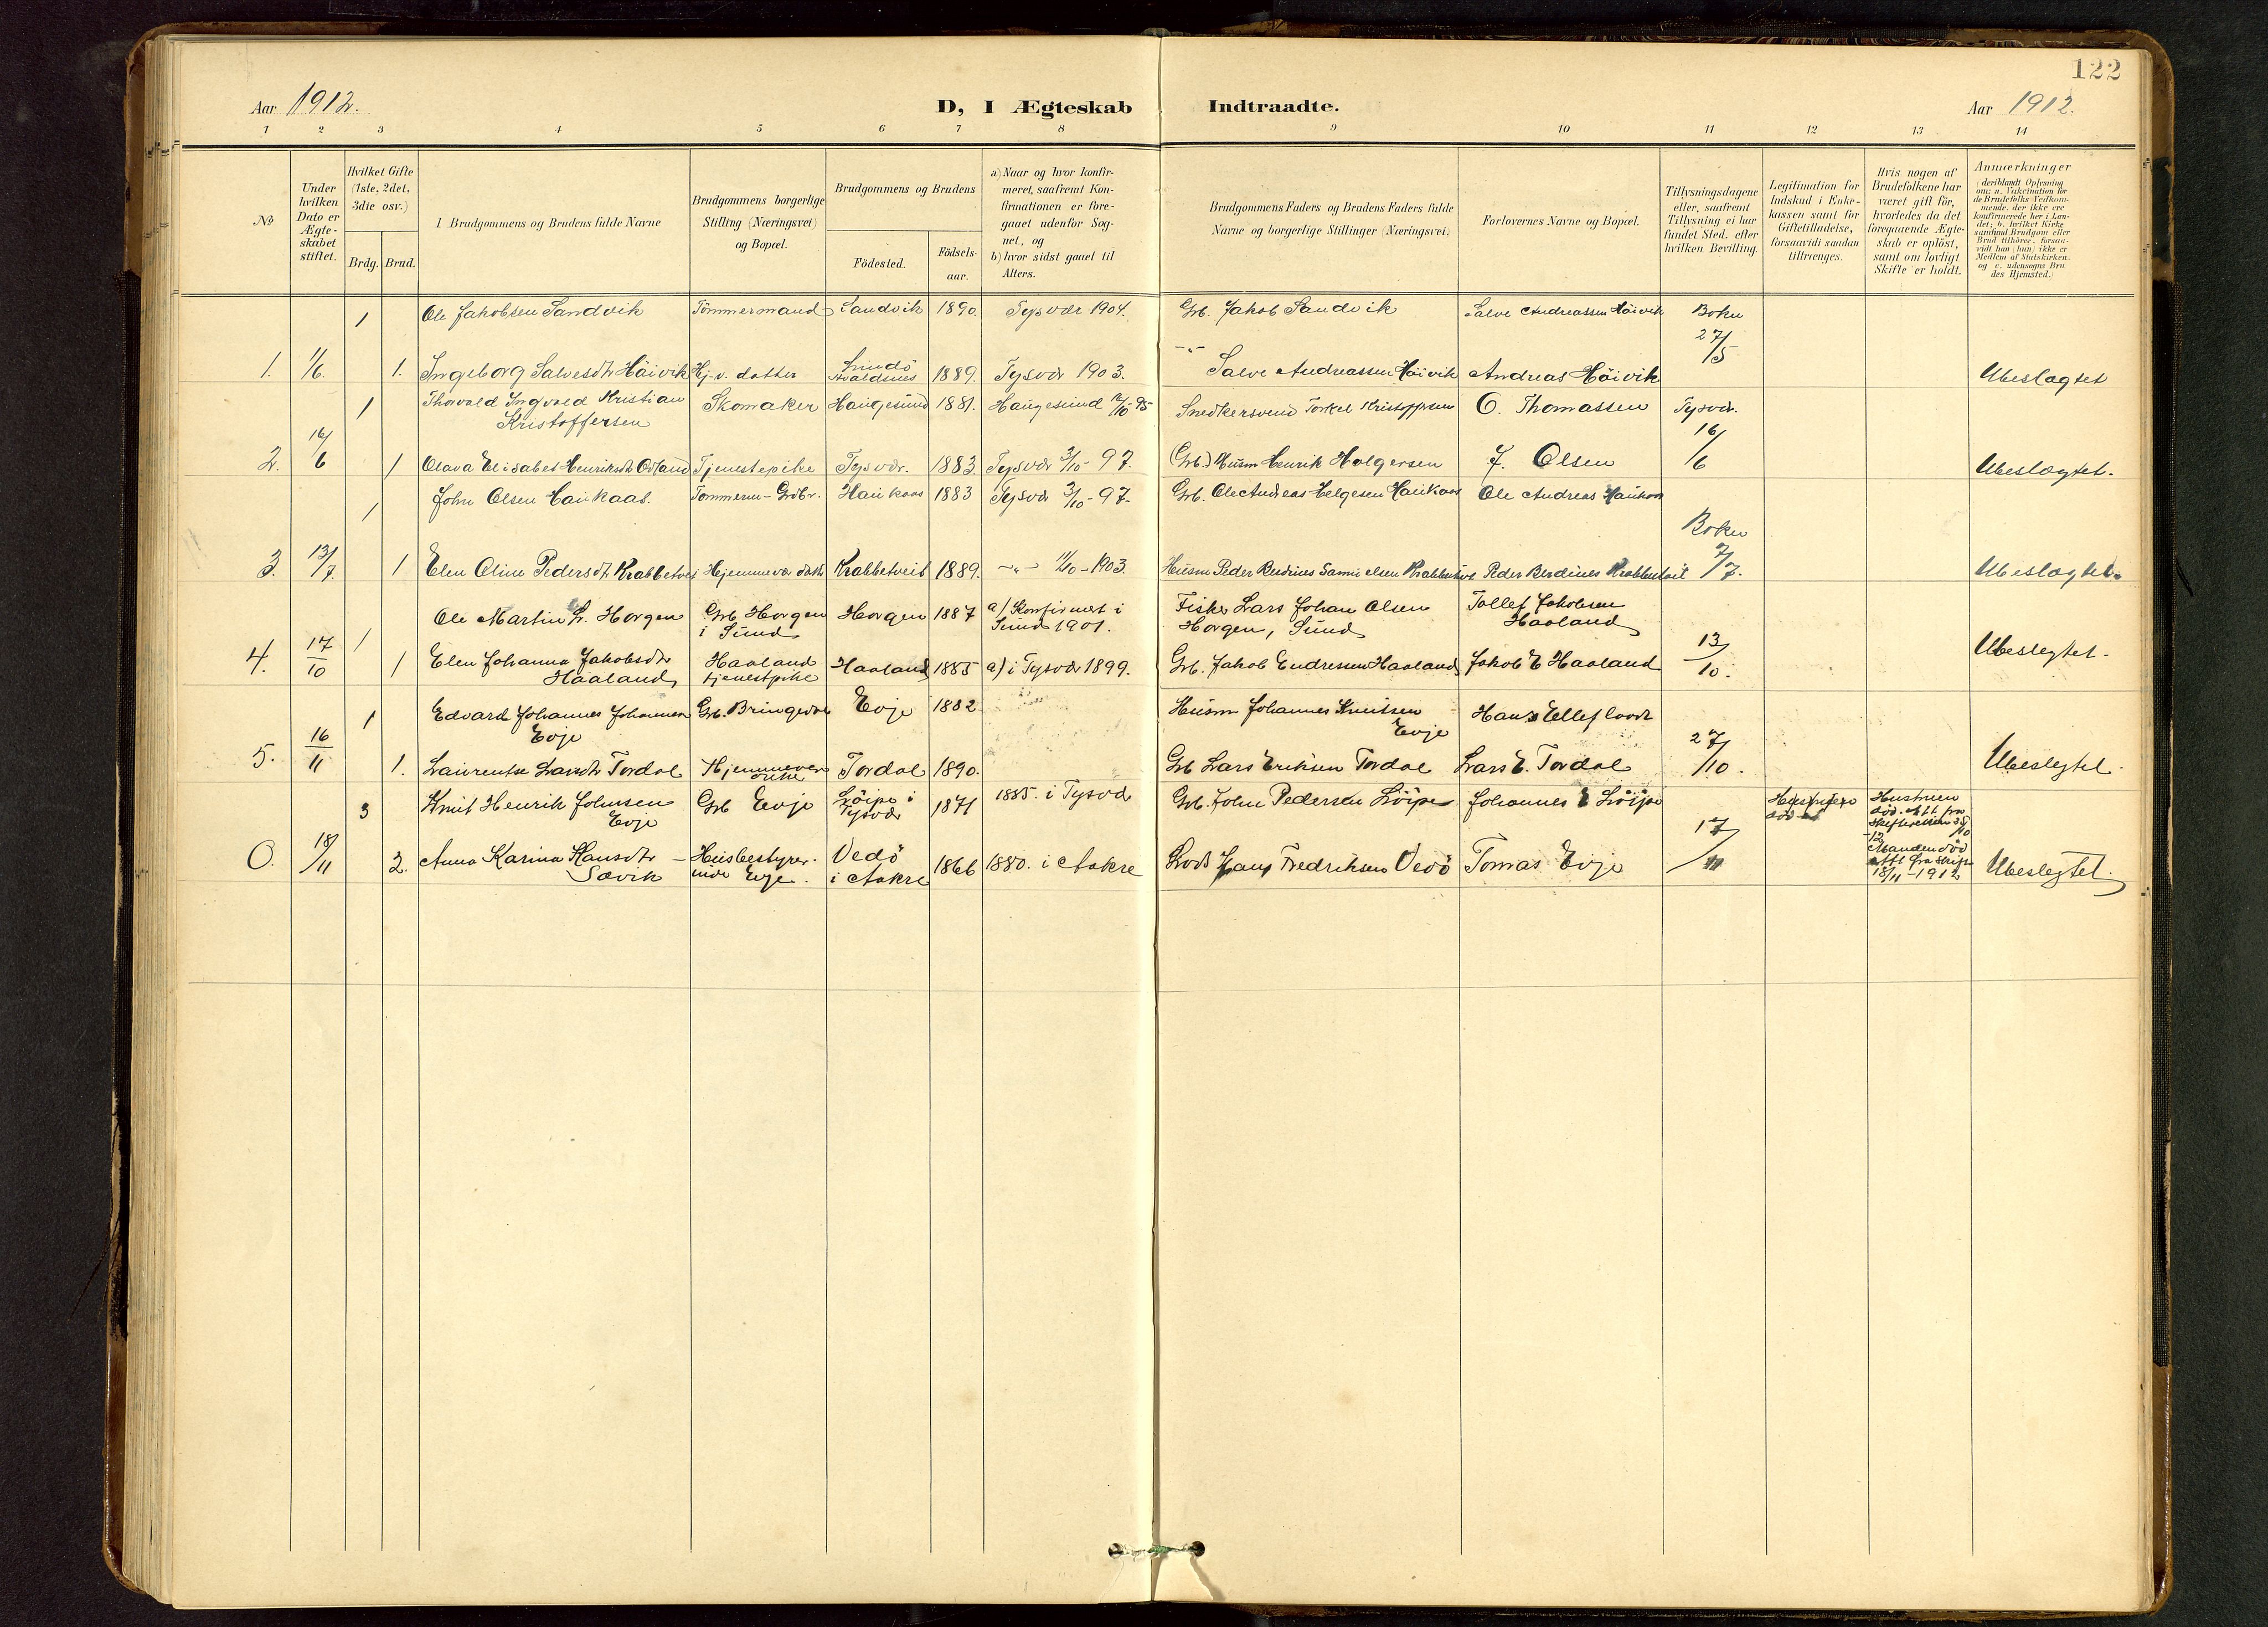 122
Aar 1912.
D, I Ægteskab Indtraadte.
Aar 1912.
1 2 3 4 5 6 7 8 9 10 11 12 13 14
No
Under hvilken Dato er Ægte-skabet stiftet.
Hvilket Gifte (1ste, 2det, 3die osv.)
Brdg. Brud.
1 Brudgommens og Brudens fulde Navne
Brudgommens borgerlige Stilling (Næringsvei) og Bopæl.
Brudgommens og Brudens
Födested.
Födsels-aar.
a) Naar og hvor konfir-meret, saafremt Kon-firmationen er fore-gaaet udenfor Sog-net, og
b) hvor sidst gaaet til Alters.
Brudgommens Faders og Brudens Faders fulde Navne og borgerlige Stillinger (Næringsvei)
Forlovernes Navne og Bopæl.
Tillysningsdagene eller, saafremt Tillysning ei har fundet Sted, efter hvilken Bevilling.
Legitimation for Indskud i Enke-kassen samt for Giftetilladelse, forsaavidt saadan tiltrænges.
Hvis nogen af Brudefolkene har været gift för, hvorledes da det foregaaende Ægte-skab er oplöst, samt om lovligt Skifte er holdt.
Anmærkninger
(deriblandt Oplysning om: a. Vakcination for de Brudefolks Vedkom-mende, der ikke ere konfirmerede her i Lan-det; b. hvilket Kirke-samfund Brudgom eller Brud tilhörer, forsaa-vidt han (hun) ikke er Medlem af Statskirken, og c. udensogns Bru-des Hjemsted.)
1 Ole Jakobsen Sandvik Tömmermand Sandvik 1890. Tysvær 1904. Grb. Jakob Sandvik Salve Andreassen Höivik Boku
27/5
1. 11/6. 1. Ingeborg Salvesdtr Höivik Hj-v. datter Avaldsnes 1889. Tysvær 1903. Salve Andreassen Höivik Andreas Höivik Ubeslægtet
1 Thorvald Ingvald Kristian Kristoffersen Skomaker Haugesund 1881. Haugesund Snedkersvend Torkel Kristoffersen O. Thomassen Tysvær.
2. 16/6 1 Olava Elisabet Henriksdtr Odland Tjenestepike Tysvær. 1883. Tysvær 3/10-97. (Grb.) Husm Henrik Holgersen J. Olsen 16/6 Ubeslægtet.
1 John Olsen Haukaas. Tommerm-Grdbr. Haukaas 1883 Tysvær 3/10-97. Grb. Ole Andreas Helgesen Haukaas Ole Andreas Haukaas
Boku
3. 13/7. 1 Elen Oline Pedersdtr Krabbetveit Hjemmevær datter Krabbetveit 1889. -"- 11/10-1903. Husm Peder Berdines Samuelsen Krabbetveit Peder Berdines Krabbetveit 7/7. Ubeslægtet.
1 Ole Martin L. Horgen Grb Horgen i Sund Horgen 1887 a) Konfirmert i Sund 1901. Fisker Lars Johan Olsen Horgen, Sund Tollef Jakobsen Haaland
4. 17/10 1 Elen Johanna Jakobsdtr Haaland Haaland tjenestpike Haaland 1885 a) i Tysvær 1899. Grb. Jakob Endresen Haaland Jakob E Haaland 13/10. Ubeslegtet.
1 Edvard Johannes Johannesen Evje Grb. Bringedal Evje 1882 Husm Johannes Knutsen Evje Hans
5. 16/11 1. Laurentse Larsdtr Tordal Hjemmevær Tordal 1890. Grb Lars Eriksen Tordal Lars E. Tordal 27/10. Ubeslegtet.
3 Knut Henrik Johnsen Evje Grb Evje Löipe i Tysvær 1871 1885. i Tysvær Grb. John Pedersen Löipe Johannes E Löipe Hustruen död. Att. fra Skifteretten
6. 18/11 2. Anna Karina Hansdtr Sævik Husbestyrer-inde Evje. Vedö i Aakre 1866 1880. i Aakre Lods Hans Fredriksen Vedö Tomas Evje 17/11 Manden död Att fra Skifte 18/11-1912 Ubeslegtet.